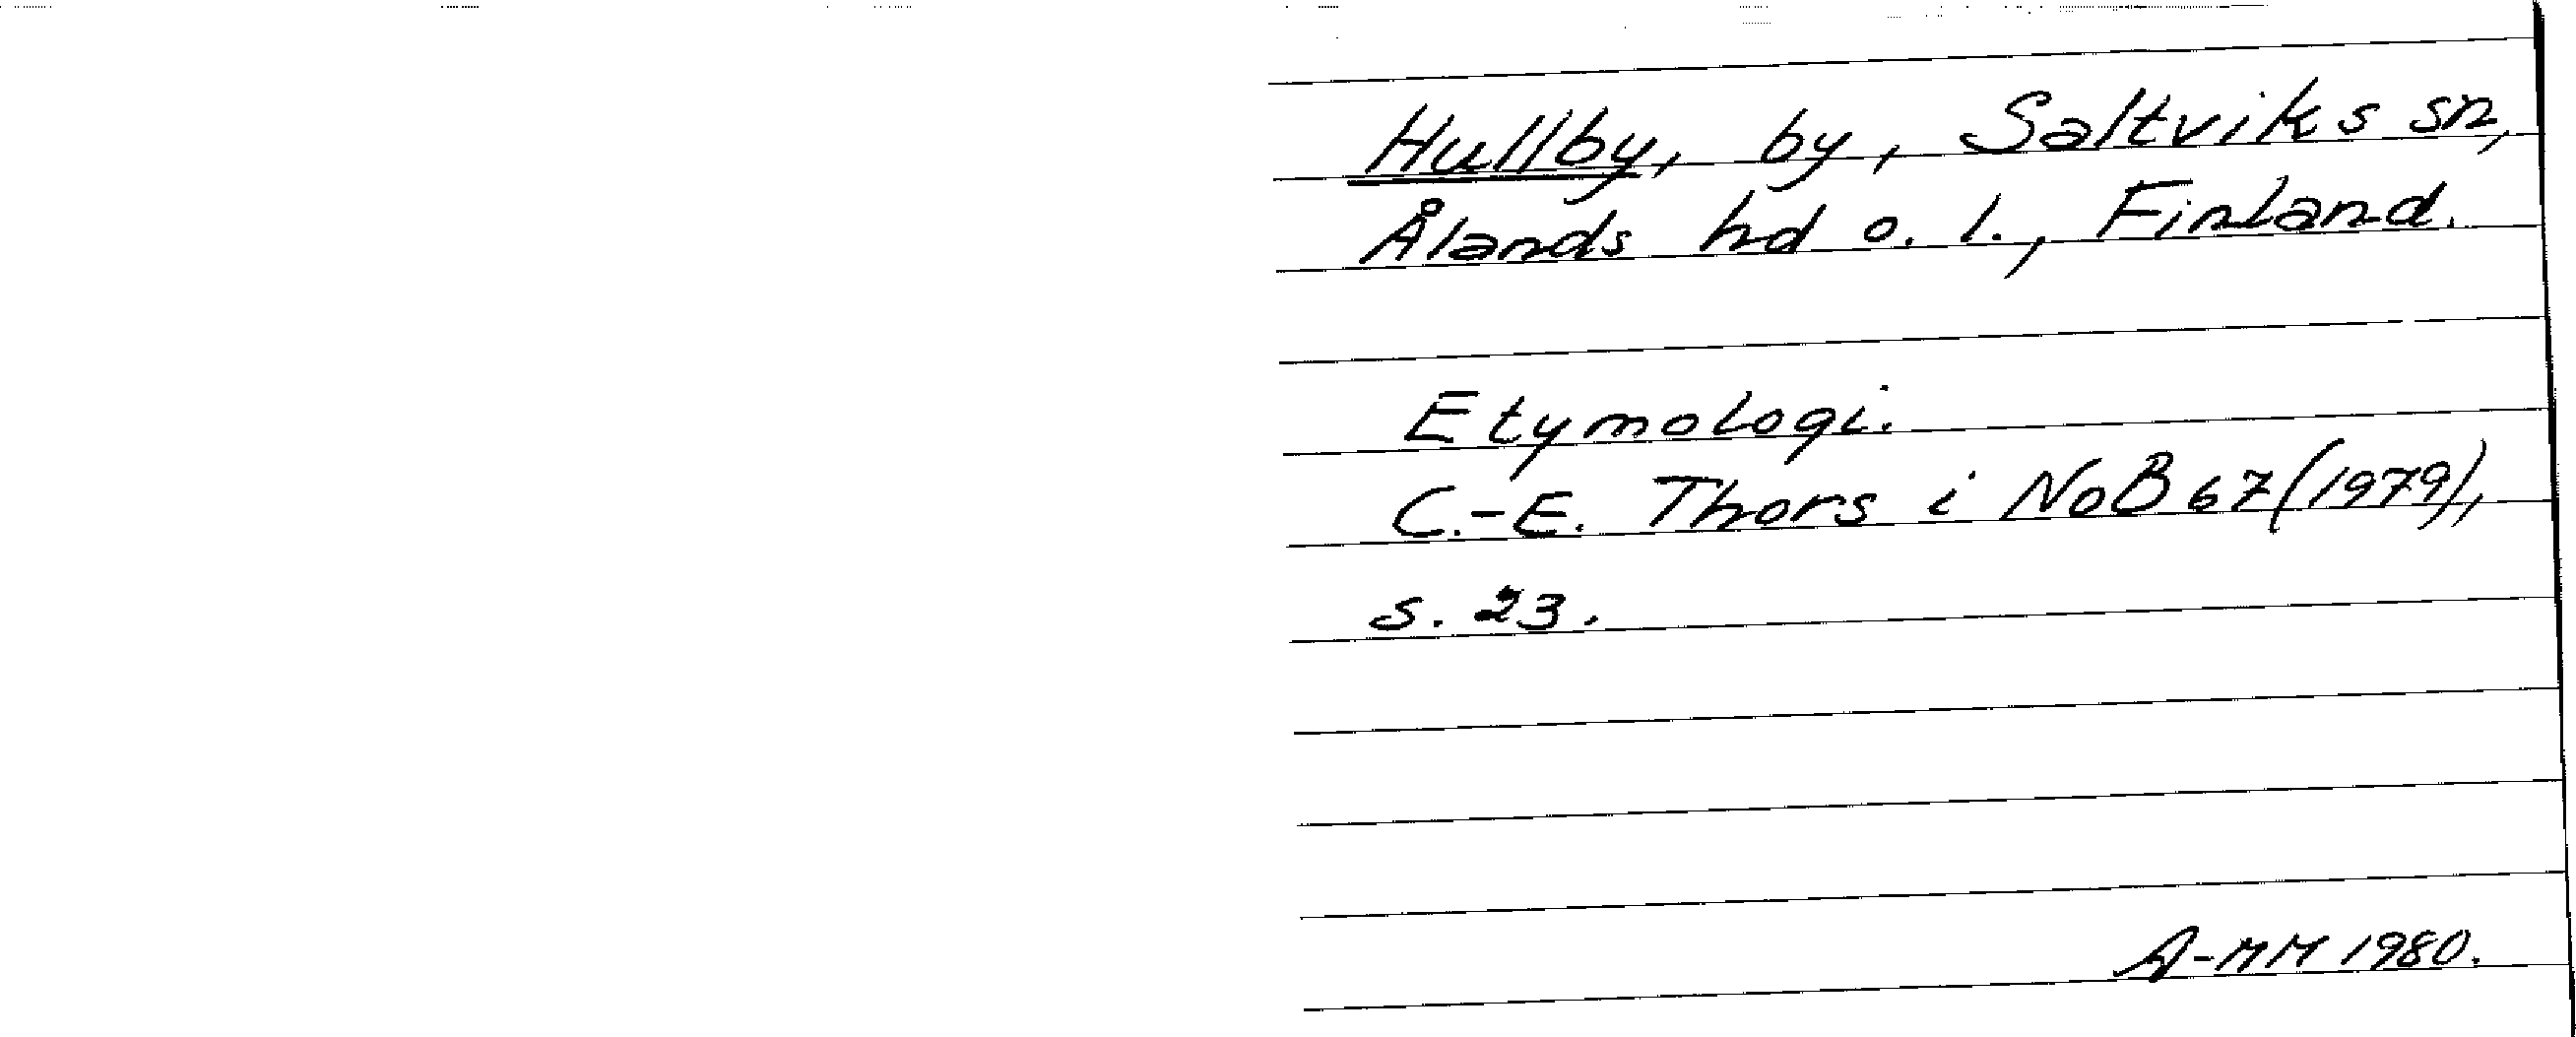 Hullby, by, Saltviks sn,
Ålands hd o. l., Finland.
Etymologi.
C.-E. Thors i NoB 67 (1979),
s. 23.
A-MM 1980.